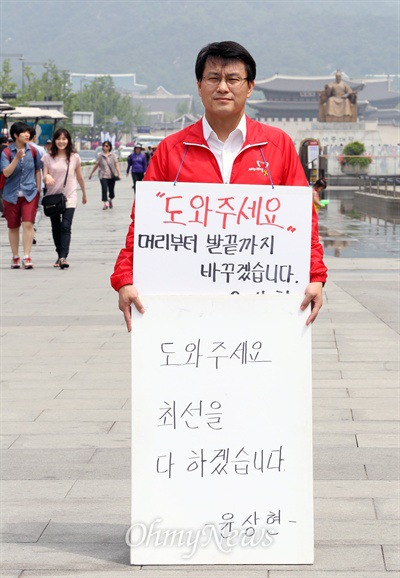 "도와주세요"
머리부터 발끝까지
바꾸겠습니다.
도와주세요
최선을
다 하겠습니다
-윤상현-
OhmyNews